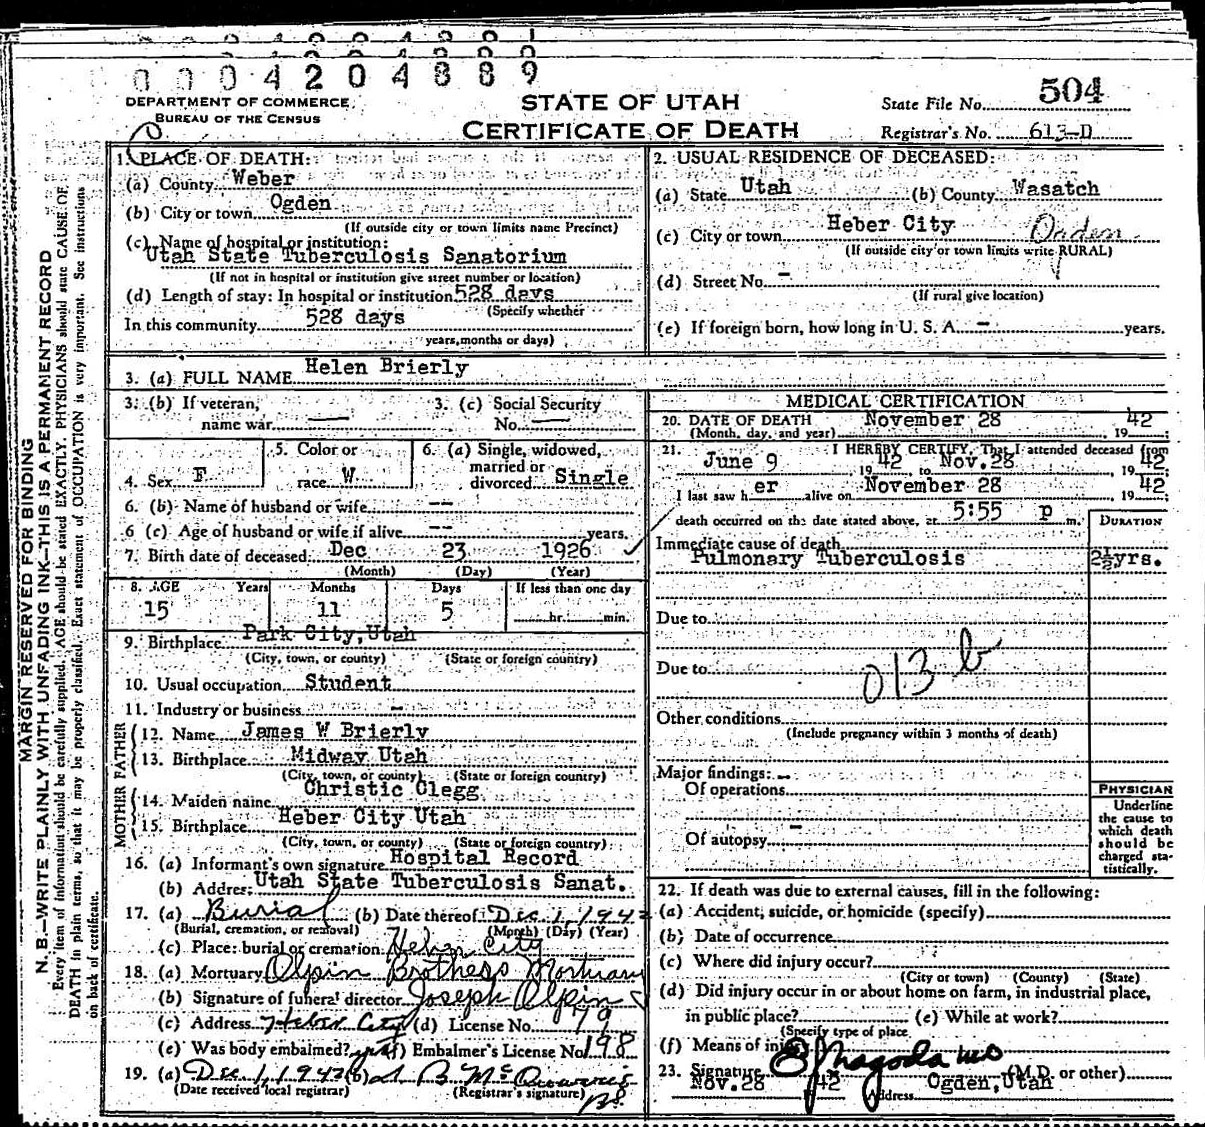 0004204889
DEPARTMENT OF COMMERCE
BUREAU OF THE CENSUS
STATE OF UTAH
CERTIFICATE OF DEATH
State File No. 504
Registrar's No. 613-D
MARGIN RESERVED FOR BINDING
N. B.—WRITE PLAINLY WITH UNFADING INK—THIS IS A PERMANENT RECORD
Every item of information should be carefully supplied. AGE should be stated EXACTLY. PHYSICIANS should state CAUSE OF
DEATH in plain terms, so that it may be properly classified. Exact statement of OCCUPATION is very important. See instructions
on back of certificate.
1. PLACE OF DEATH:
(a) County Weber
(b) City or town Ogden
(If outside city or town limits name Precinct)
(c) Name of hospital or institution:
Utah State Tuberculosis Sanatorium
(If not in hospital or institution give street number or location)
(d) Length of stay: In hospital or institution 528 days
(Specify whether
In this community 528 days
years, months or days)
2. USUAL RESIDENCE OF DECEASED:
(a) State Utah (b) County Wasatch
(c) City or town Heber City Ogden
(If outside city or town limits write RURAL)
(d) Street No. -
(If rural give location)
(e) If foreign born, how long in U. S. A. - years.
3. (a) FULL NAME Helen Brierly
3. (b) If veteran, name war
3. (c) Social Security No.
4. Sex F
5. Color or race W
6. (a) Single, widowed, married or divorced Single
6. (b) Name of husband or wife --
6 (c) Age of husband or wife if alive -- years.
7. Birth date of deceased Dec 23 1926
(Month) (Day) (Year)
8. AGE Years Months Days If less than one day
15 11 5 hr. min.
9. Birthplace Park City, Utah
(City, town, or county) (State or foreign country)
10. Usual occupation Student
11. Industry or business -
FATHER
12. Name James W Brierly
13. Birthplace Midway Utah
(City, town, or county) (State or foreign country)
MOTHER
14. Maiden name Christic Clegg
15. Birthplace Heber City Utah
(City, town, or county) (State or foreign country)
16. (a) Informant's own signature Hospital Record
(b) Addres: Utah State Tuberculosis Sanat.
17. (a) Burial (b) Date thereof Dec 1, 1942
(Burial, cremation, or removal) (Month) (Day) (Year)
(c) Place: burial or cremation Heber City
18. (a) Mortuary Olpin Brothers Mortuary
(b) Signature of funeral director Joseph Olpin
(c) Address Heber City (d) License No. 79
(e) Was body embalmed? yes (f) Embalmer's License No. 198
19. (a) Dec 1, 1942 (b)
(Date received local registrar) (Registrar's signature)
MEDICAL CERTIFICATION
20. DATE OF DEATH November 28 1942
(Month, day, and year)
21. I HEREBY CERTIFY, That I attended deceased from
June 9 1942 to Nov. 28 1942
I last saw her alive on November 28 1942
death occurred on the date stated above, at 5:55 p m.
DURATION
Immediate cause of death
Pulmonary Tuberculosis 2½yrs.
Due to
Due to
013 b
Other conditions
(Include pregnancy within 3 months of death)
Major findings: -
Of operations
Of autopsy -
PHYSICIAN
Underline
the cause to
which death
should be
charged sta-
tistically.
22. If death was due to external causes, fill in the following:
(a) Accident, suicide, or homicide (specify)
(b) Date of occurrence
(c) Where did injury occur?
(City or town) (County) (State)
(d) Did injury occur in or about home on farm, in industrial place,
in public place? (e) While at work?
(Specify type of place
(f) Means of injury
23. Signature (M.D. or other)
Nov. 28 42 Address Ogden, Utah